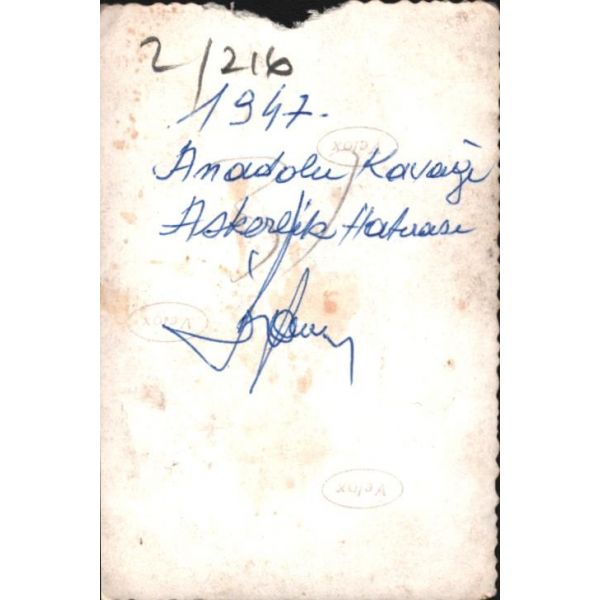 2/216
1947.
Velox
Anadolu Kavağı
Askerlik Hatırası
Velox
Velox